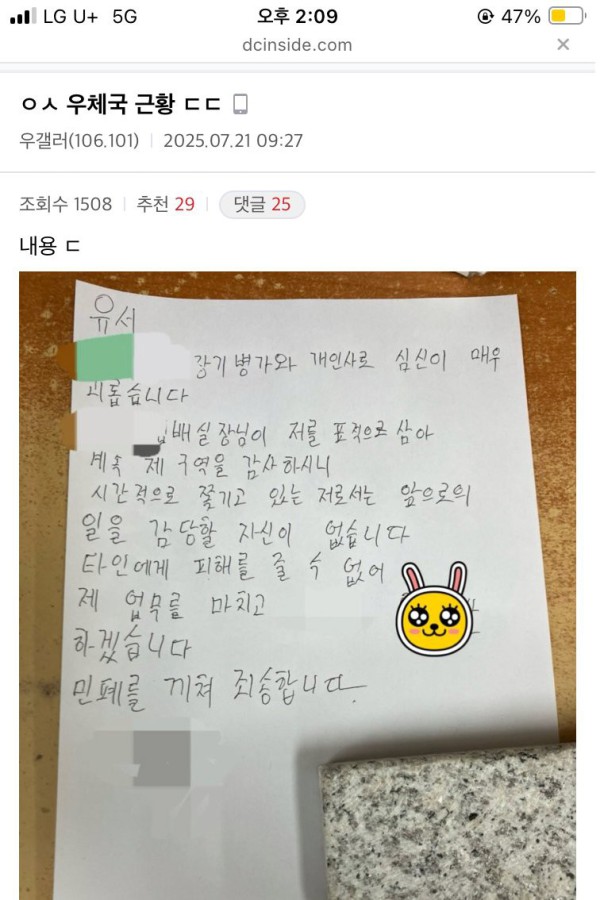 LG U+ 5G 오후 2:09 47%
dcinside.com ×
ㅇㅅ 우체국 근황 ㄷㄷ
우갤러(106.101) 2025.07.21 09:27
조회수 1508 추천 29 댓글 25
내용 ㄷ
유서
장기병가와 개인사로 심신이 매우
괴롭습니다
배실장님이 저를 표적으로 삼아
계속 제 구역을 감사하시니
시간적으로 쫓기고 있는 저로서는 앞으로의
일을 감당할 자신이 없습니다
타인에게 피해를 줄 수 없어
제 업무를 마치고
하겠습니다
민폐를 끼쳐 죄송합니다.